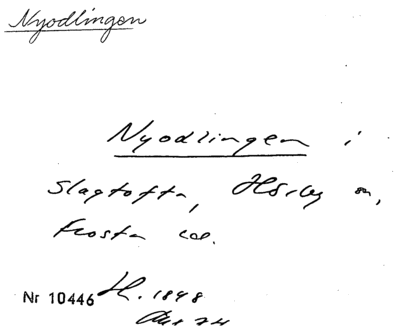 Nyodlingen
Nyodlingen i
Slagtofta, Hörby sn,
Frosta hd.
Nr 10446 H. 1848